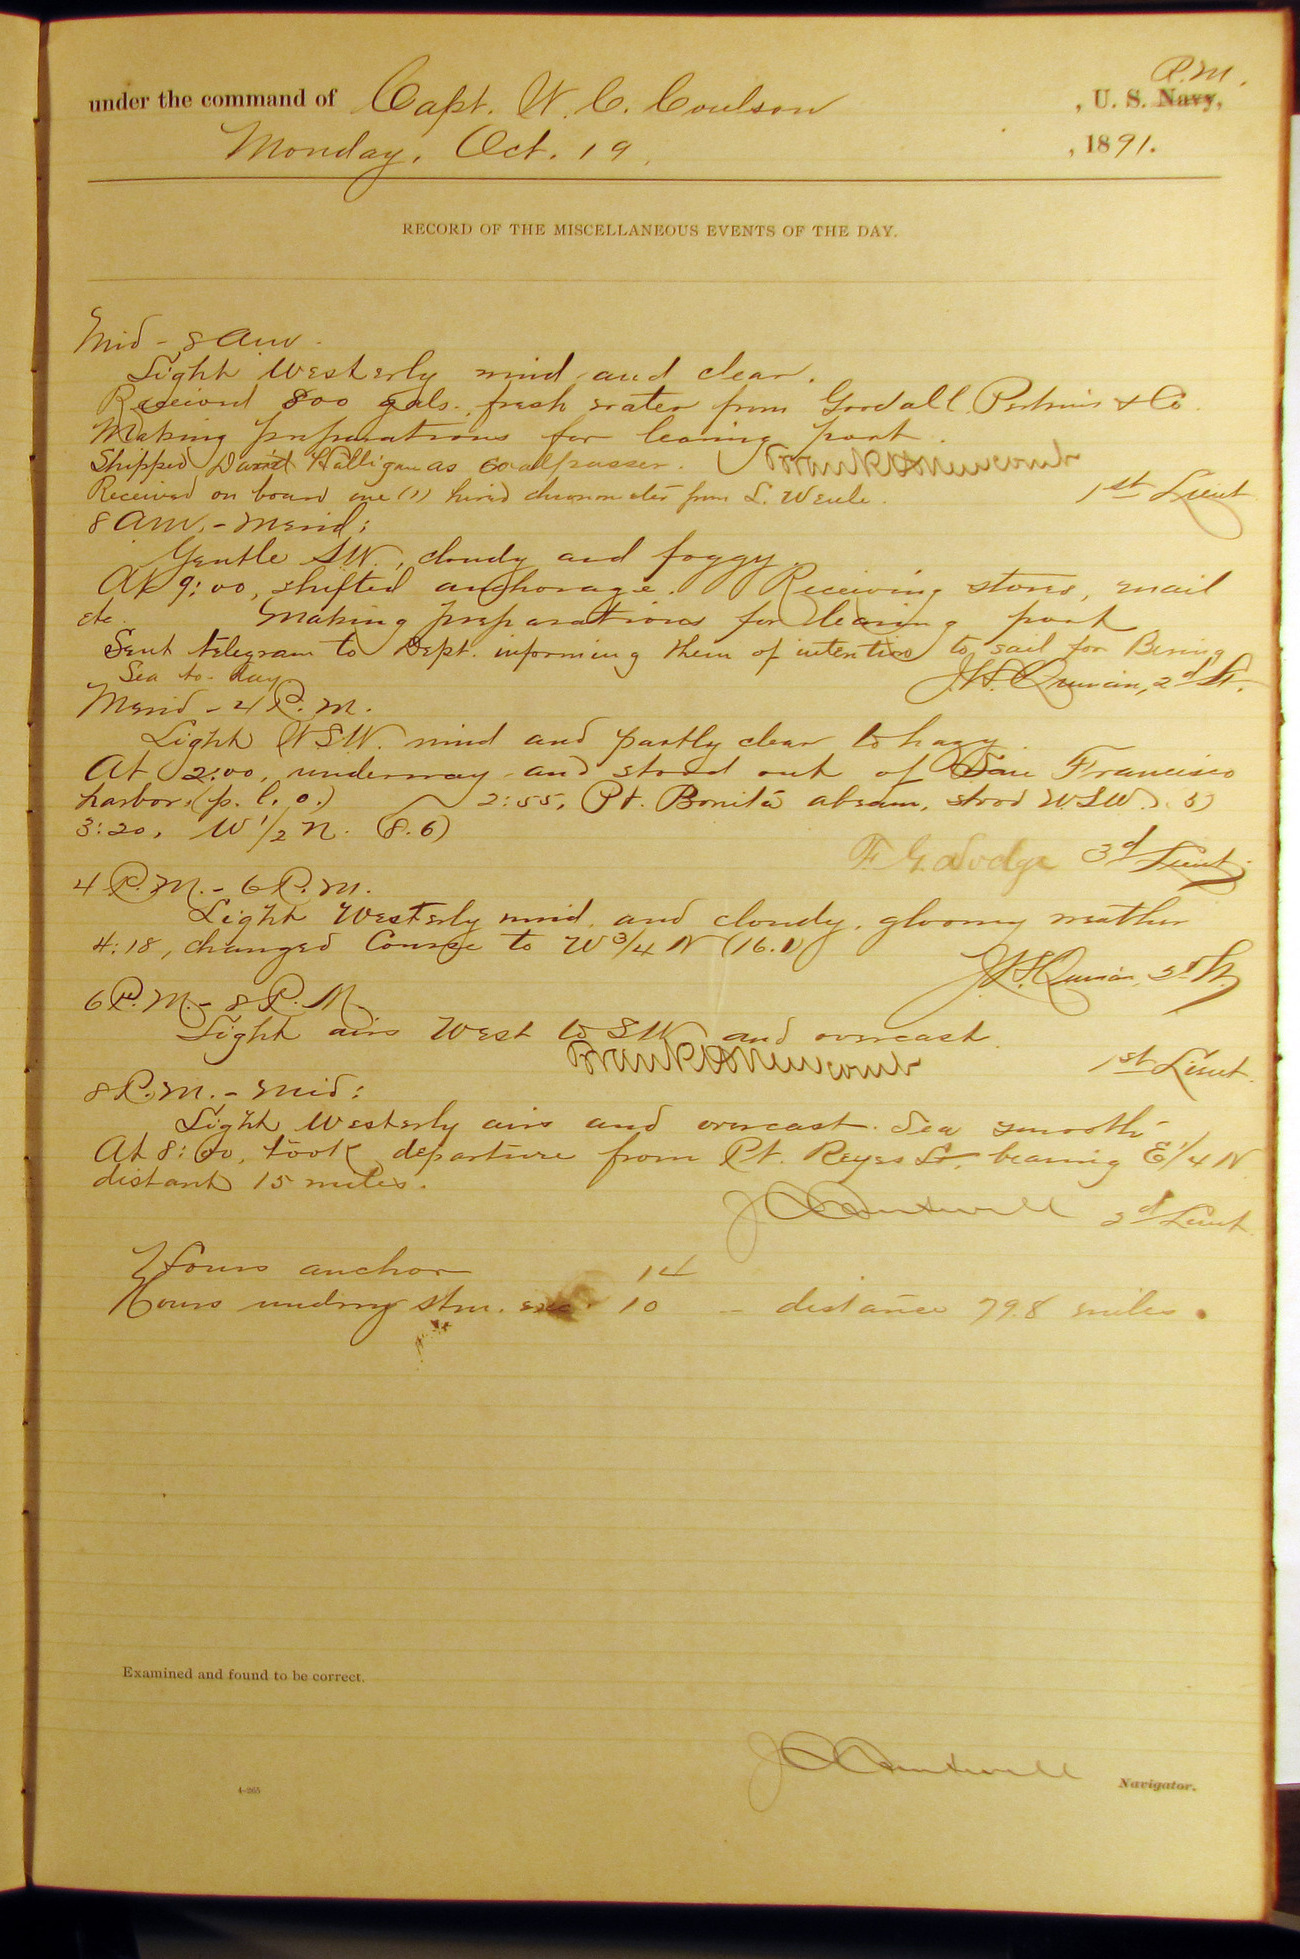 R.M.
under the command of Capt. W. C. Coulson , U. S. Navy,
Monday, Oct. 19, , 1891.
RECORD OF THE MISCELLANEOUS EVENTS OF THE DAY.
Mid - 8 Am.
Light Westerly wind and clear.
Received 800 gals. fresh water from Goodall Perkins & Co.
Making preparations for leaving port.
Shipped David Halligan as coalpasser. Frank H Newcomb
Received on board one (1) hired chronometer from L. Weule. 1st Lieut
8 Am. - Merid:
Gentle SW., cloudy and foggy.
At 9:00, shifted anchorage. Receiving stores, mail
etc. Making preparations for leaving port
Sent telegram to Dept. informing them of intention to sail for Bering
Sea to-day J.W. Quinan, 2d Lt.
Merid - 4 P.M.
Light WSW. wind and partly clear to hazy
At 2:00, underway and stood out of San Francisco
harbor, (p. l. o.) 2:55, Pt. Bonita abeam, stood WSW.
3:20, W 1/2 N. (8.6)
F. G. Dodge 3d Lieut.
4 P.M. - 6 P.M.
Light Westerly wind, and cloudy, gloomy weather
4:18, changed Course to W 3/4 N (16.1)
J.W. Quinan, 2d Lt.
6 P.M. - 8 P.M.
Light airs West to SW and overcast.
Frank H Newcomb 1st Lieut.
8 P.M. - Mid:
Light Westerly airs and overcast. Sea smooth
At 8:00, took departure from Pt. Reyes Lt. bearing E 1/4 N
distant 15 miles.
J C Cantwell 2d Lieut
Hours anchor 14
Hours underway stm. 10 - distance 79.8 miles.
Examined and found to be correct.
J C Cantwell Navigator.
4-265